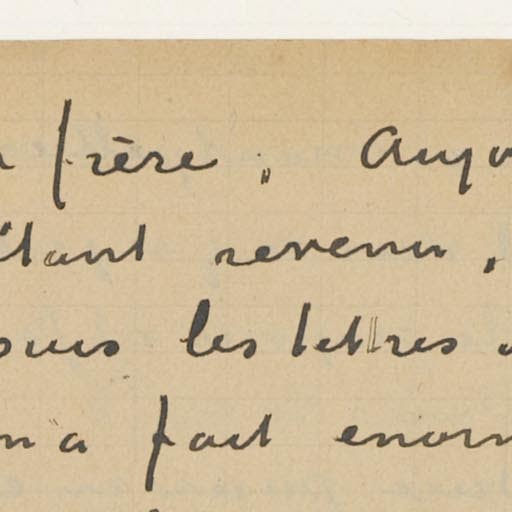 frère. Aujo
étant revenu,
les lettres
m'a fait enorm